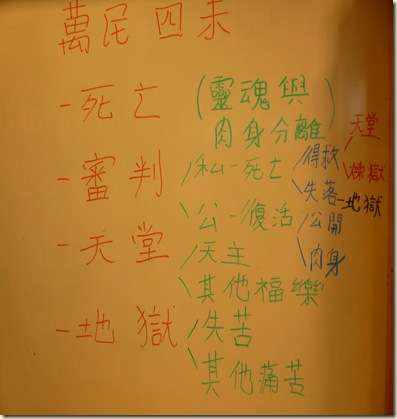 萬民四末
-死亡(靈魂與肉身分離)
-審判/私-死亡/得救/天堂
\煉獄
\失落-地獄
\公-復活/公開
\肉身
-天堂/天主
\其他福樂
-地獄/失苦
\其他痛苦